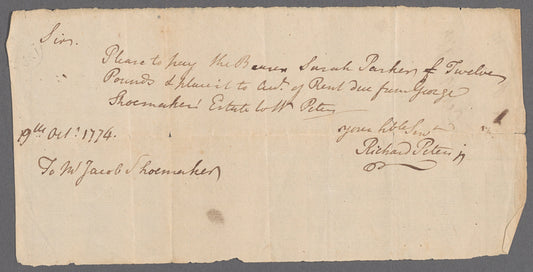 Sir,
Please to pay the Bearer Sarah Parker £ Twelve
Pounds & place it to Acct. of Rent due from George
Shoemaker's Estate to Wm Peters
your hble Servt
19th Octr. 1774.
Richard Peters jr
To Mr Jacob Shoemaker